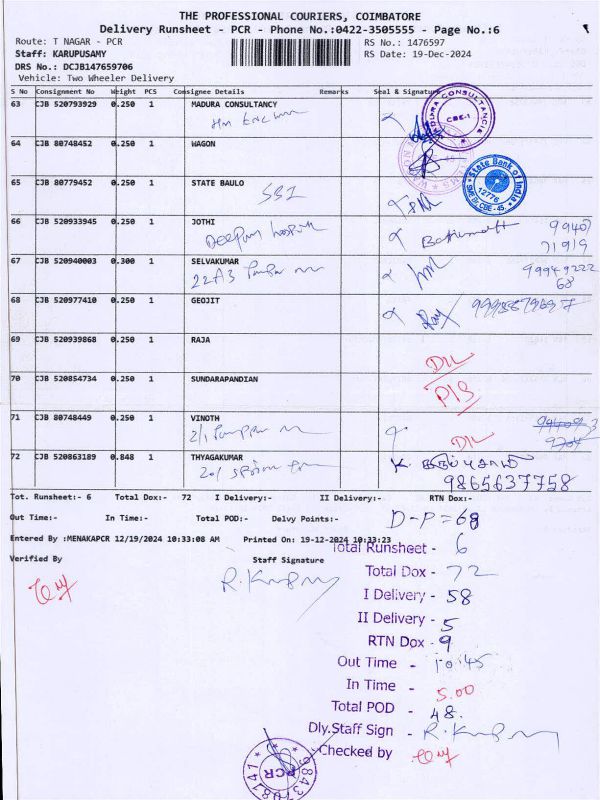 THE PROFESSIONAL COURIERS, COIMBATORE
Delivery Runsheet - PCR - Phone No.:0422-3505555 - Page No.:6
Route: T NAGAR - PCR RS No.: 1476597
Staff: KARUPUSAMY RS Date: 19-Dec-2024
DRS No.: DCJB147659706
Vehicle: Two Wheeler Delivery
S No Consignment No Weight PCS Consignee Details Remarks Seal & Signature
63 CJB 520793929 0.250 1 MADURA CONSULTANCY
MADURA CONSULTANCY CBE-1
64 CJB 80748452 0.250 1 WAGON
65 CJB 80779452 0.250 1 STATE BAULO
SBI
State Bank of India
12776
SME Br, CBE - 45
66 CJB 520933945 0.250 1 JOTHI
99407
71919
67 CJB 520940003 0.300 1 SELVAKUMAR
22A3
99949222
68
68 CJB 520977410 0.250 1 GEOJIT
69 CJB 520939868 0.250 1 RAJA
DIL
70 CJB 520854734 0.250 1 SUNDARAPANDIAN
P13
71 CJB 80748449 0.250 1 VINOTH
2/1
DIL
72 CJB 520863189 0.848 1 THYAGAKUMAR
20/
9865637758
Tot. Runsheet:- 6 Total Dox:- 72 I Delivery:- II Delivery:- RTN Dox:-
Out Time:- In Time:- Total POD:- Delvy Points:-
D-P=68
Entered By :MENAKAPCR 12/19/2024 10:33:08 AM Printed On: 19-12-2024 10:33:23
Verified By Staff Signature
Total Runsheet - 6
Total Dox - 72
I Delivery - 58
II Delivery - 5
RTN Dox - 9
Out Time - 10.45
In Time - 5.00
Total POD - 48.
Dly.Staff Sign -
Checked by
PCR